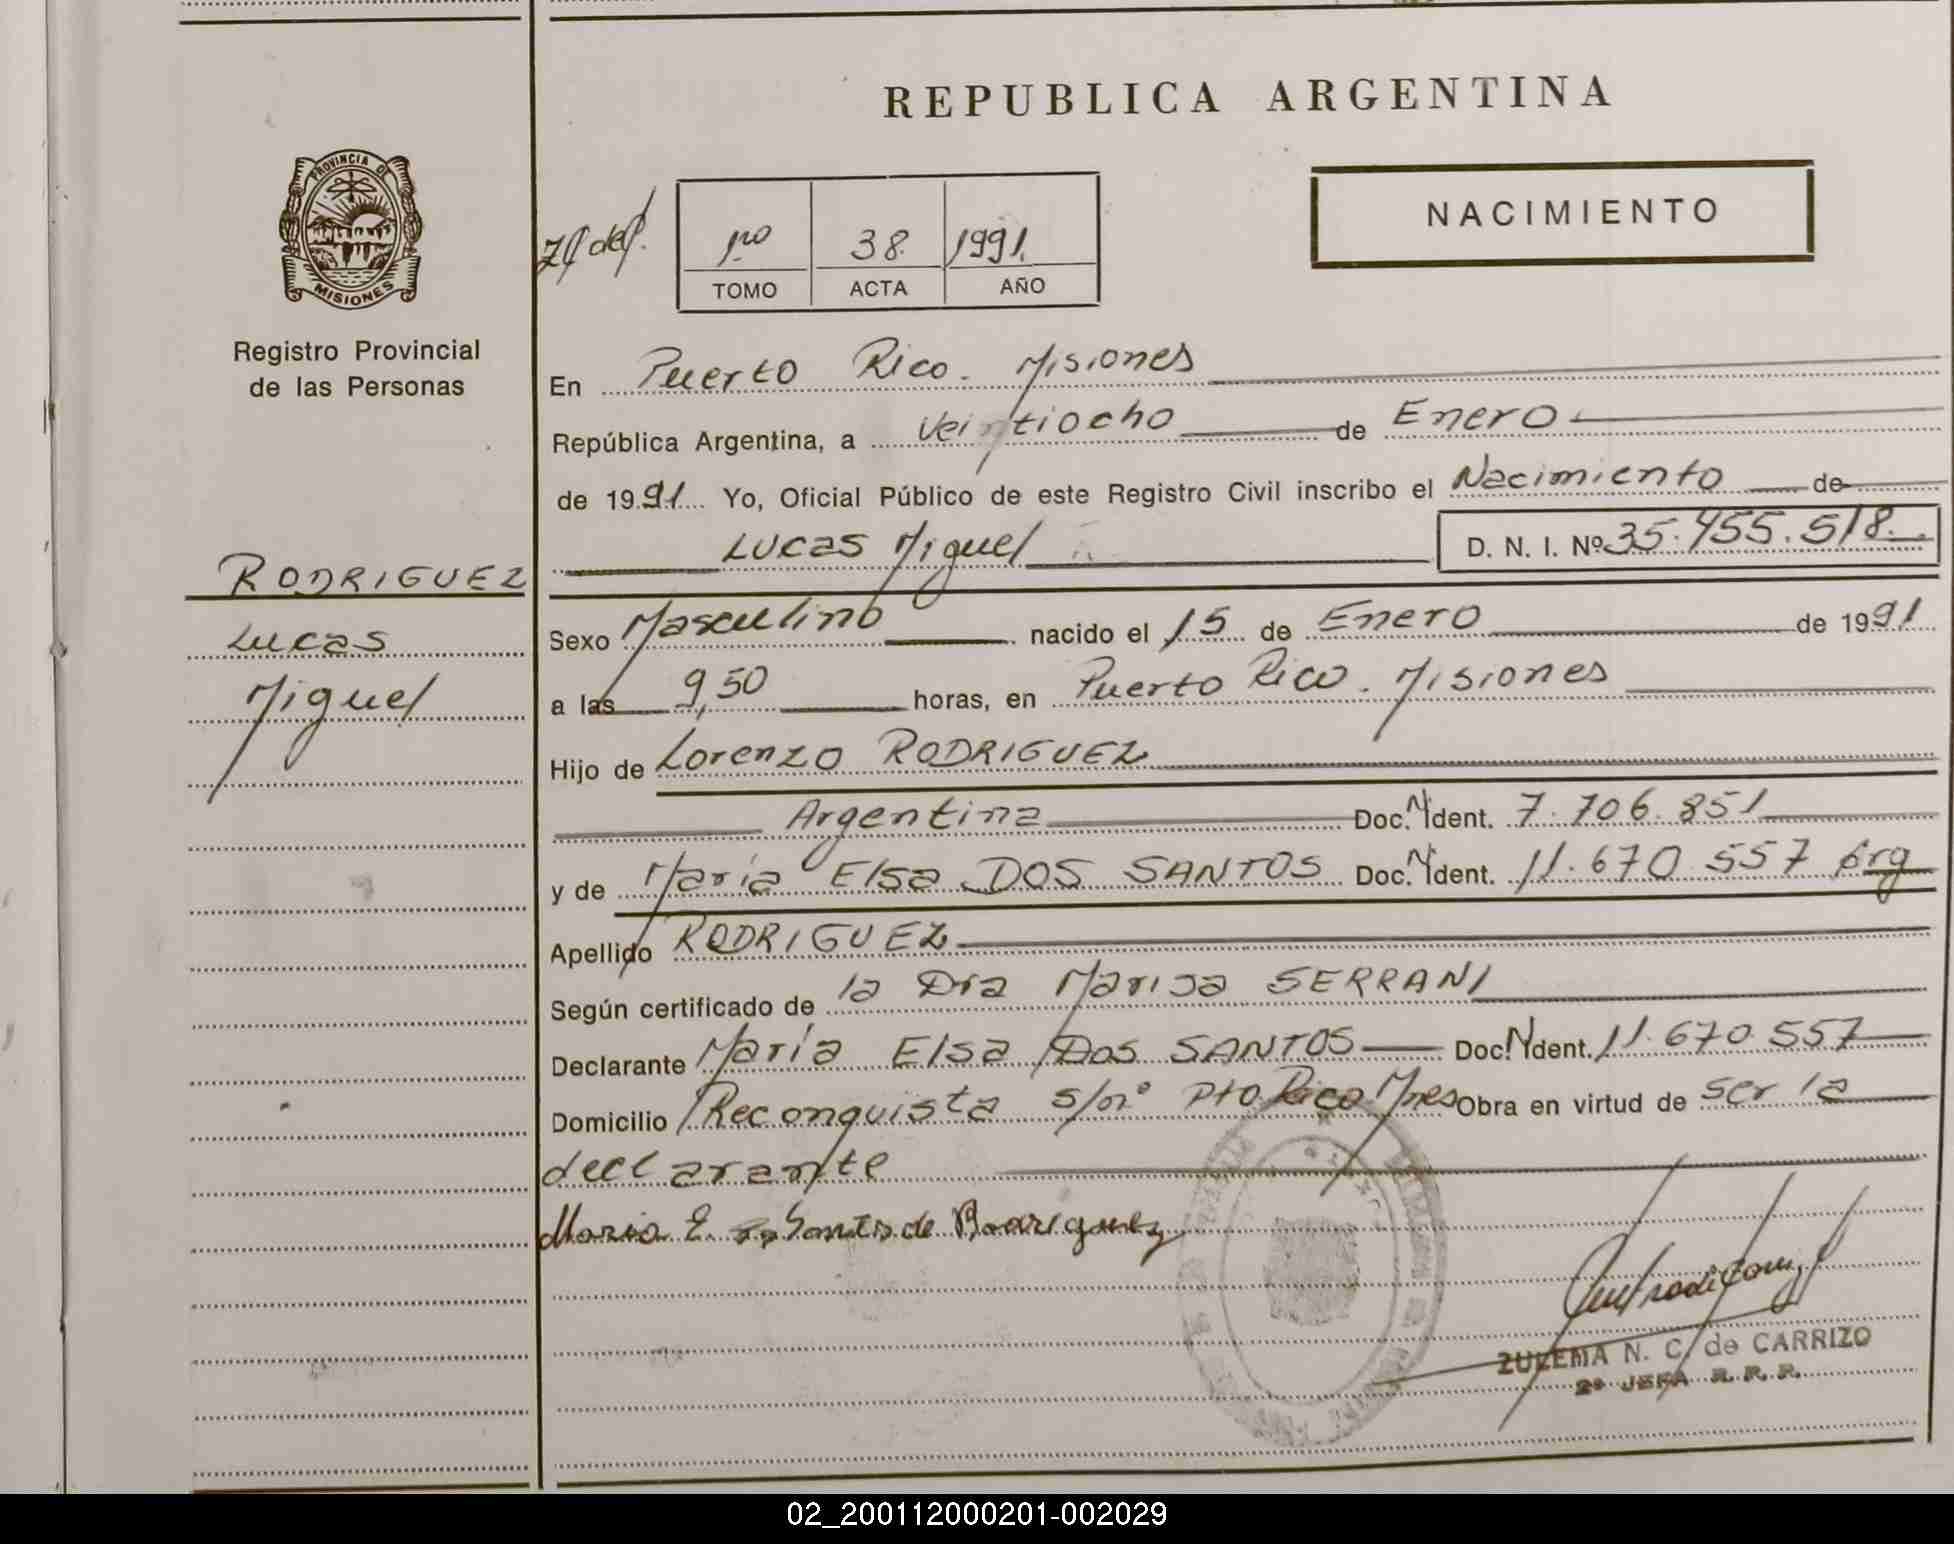 REPUBLICA ARGENTINA
PROVINCIA DE
MISIONES
Registro Provincial
de las Personas
1ro 38. 1991.
TOMO ACTA AÑO
NACIMIENTO
En Puerto Rico. Misiones
República Argentina, a Veintiocho de Enero
de 1991 Yo, Oficial Público de este Registro Civil inscribo el Nacimiento de
Lucas Miguel D. N. I. Nº 35.455.518.
RODRIGUEZ
Lucas
Miguel
Sexo Masculino nacido el 15 de Enero de 1991
a las 9,50 horas, en Puerto Rico. Misiones
Hijo de Lorenzo RODRIGUEZ
Argentina Doc. N Ident. 7.706.851
y de María Elsa DOS SANTOS Doc. N Ident. 11.670.557 Arg
Apellido RODRIGUEZ
Según certificado de la Dra Marisa SERRANI
Declarante María Elsa Dos SANTOS Doc. N Ident. 11.670.557
Domicilio Reconquista s/nº Pto Rico Mnes Obra en virtud de ser la
declarante
Maria E. Santos de Rodriguez
ZULEMA N. C. de CARRIZO
2º JEFA R. P. P.
02_200112000201-002029